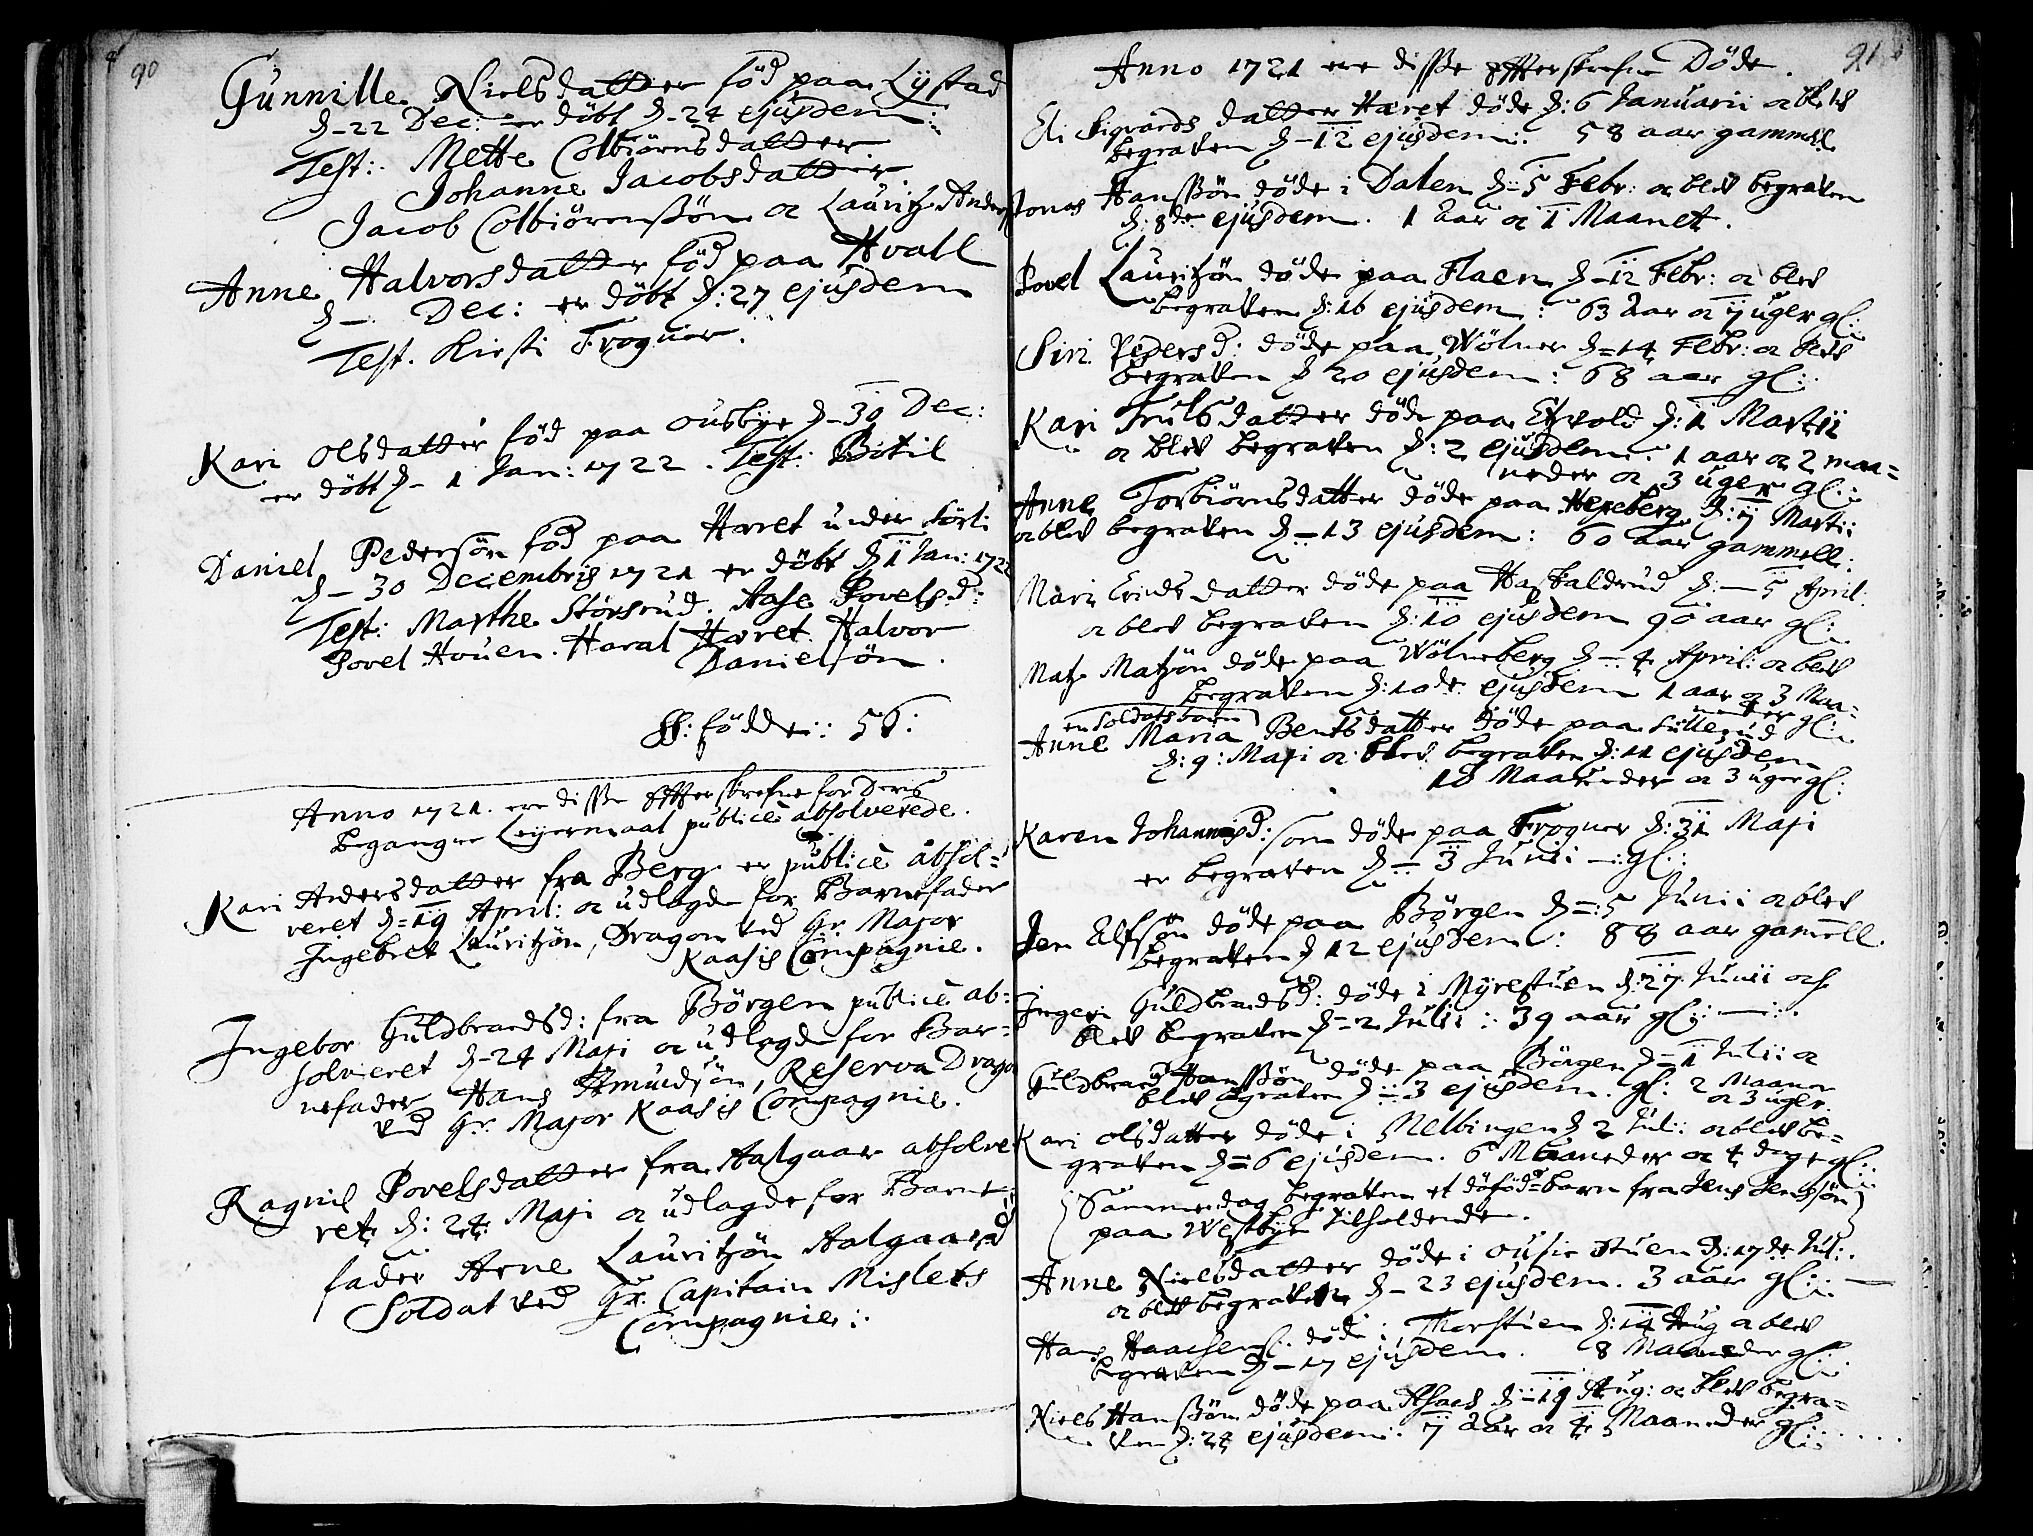 90
Gunnille Nielsdatter föd paa Lystad
d-22 Dec: er döbt d-24 ejusdem:
Test: Mette Colbiörnsdatter
Johanne Jacobsdatter
Jacob Colbiörenssön oc Lauritz Anders
Anne Halvorsdatter föd paa Hvall
d- Dec: er döbt d: 27 ejusdem
Test. Kirsti Frogner.
Kari Olsdatter föd paa Ousbye d-30 Dec:
er döbt d- 1 Jan: 1722. Test: Botil
Daniel Pedersön föd paa Haret under
d-30 Decembris 1721 er döbt d 1 Jan: 1722
Test: Marthe Störsrud. Aase Povelsd:
Povel Houen. Haral Haret. Halvor
Danielsön.
födde: 56:
Anno 1721. ere disse effterskrefne for Deris
begangne Leyermaal publicè absolverede.
Kari Andersdatter fra Berg er publicè absol=
veret d=19 April: oc udlagde for Barnefader
Ingebret Lauritzön, Dragon ved Hr. Major
Kaasis Compagnie.
Ingebor Guldbrandsd: fra Börgen publicè ab=
solveret d-24 Maji oc udlagde for Bar=
nefader Hans Amundsön, Reserva Drago
ved Hr. Major Kaasis Compagnie.
Ragnil Povelsdatter fra Aalgaar absolve
ret d: 24 Maji oc udlagde for Barne
fader Arne Lauritzön Aalgaard
Soldat ved Hr. Capitain Mislets
Compagnie:
91
Anno 1721 ere disse effterskrefne Döde.
Eli Sigvards datter Haret döde d: 6 Januarii oc blef
begraven d-12 ejusdem: 58 aar gammell
Jonas Hanssön döde i Dalen d-5 Febr: oc blef begraven
d: 8de ejusdem. 1 aar oc 1 Maanet.
Povel Lauritzön döde paa Flaen d-12 Febr: oc blef
begraven d: 16 ejusdem: 63 aar oc 7 uger gl:
Siri Pedersd: döde paa Wölner d=14 Febr: oc blef
begraven d 20 ejusdem: 68 aar gl:
Kari Trulsdatter döde paa Egvold d: 1 Martii
oc blef begraven d: 2 ejusdem: 1 aar oc 2 maa=
neder oc 3 uger gl:
Anne Torbiörnsdatter döde paa Hexeberg d: 7 Martii
oc blef begraven d-13 ejusdem: 60 aar gammell:
Mari Erichsdatter döde paa Haxaldrud d:-5 April:
oc blef begraven d: 10 ejusdem 90 aar gl:
Matz Matzön döde paa Wölneberg d-4 April: oc blef
begraven d: 10de ejusdem 1 aar oc 3 Maa=
neder gl:
en soldats barn
Anne Maria Bentsdatter döde paa Lullerud
d: 9: Maji oc blef begraven d: 11 ejusdem
18 Maaneder oc 3 uger gl:
Karen Johannisd: som döde paa Frogner d: 31 Maji
er begraven d- 3 Junii -: gl:
Jen döde paa Börgen d=:5 Junii oc blef
begraven d 12 ejusdem: 88 aar gamell.
Ingeri Guldbrandsd: döde i Myrestuen d: 27 Junii och
blef begraven d=2 Julii: 39 aar gl:-:.
Guldbrand Hanssön döde paa Börgen d=1 Julii oc
blef begraven d-3 ejusdem. gl: 2 Maaner
oc 3 uger.
Kari Olsdatter döde i Melbingen d 2 Jul: oc blef be=
graven d=6 ejusdem. 6 Maaneder oc 4 dage gl:
(Sammedag begraven et döföd=barn fra Jens Jenssön)
paa Westbye tilholdende.
Anne Nielsdatter döde i Ousie Stuen d: 17de Jul:
oc blef begraven d-23 ejusdem. 3 aar gl:
Hans döde i Thorstuen d: 14 Aug oc blef
begraven d-17 ejusdem. 8 Maaneder gl:
Niels Hanssön döde paa d-19 Aug: oc blef begra=
ven d: 24 ejusdem: 7 aar oc 4 Maaneder gl: